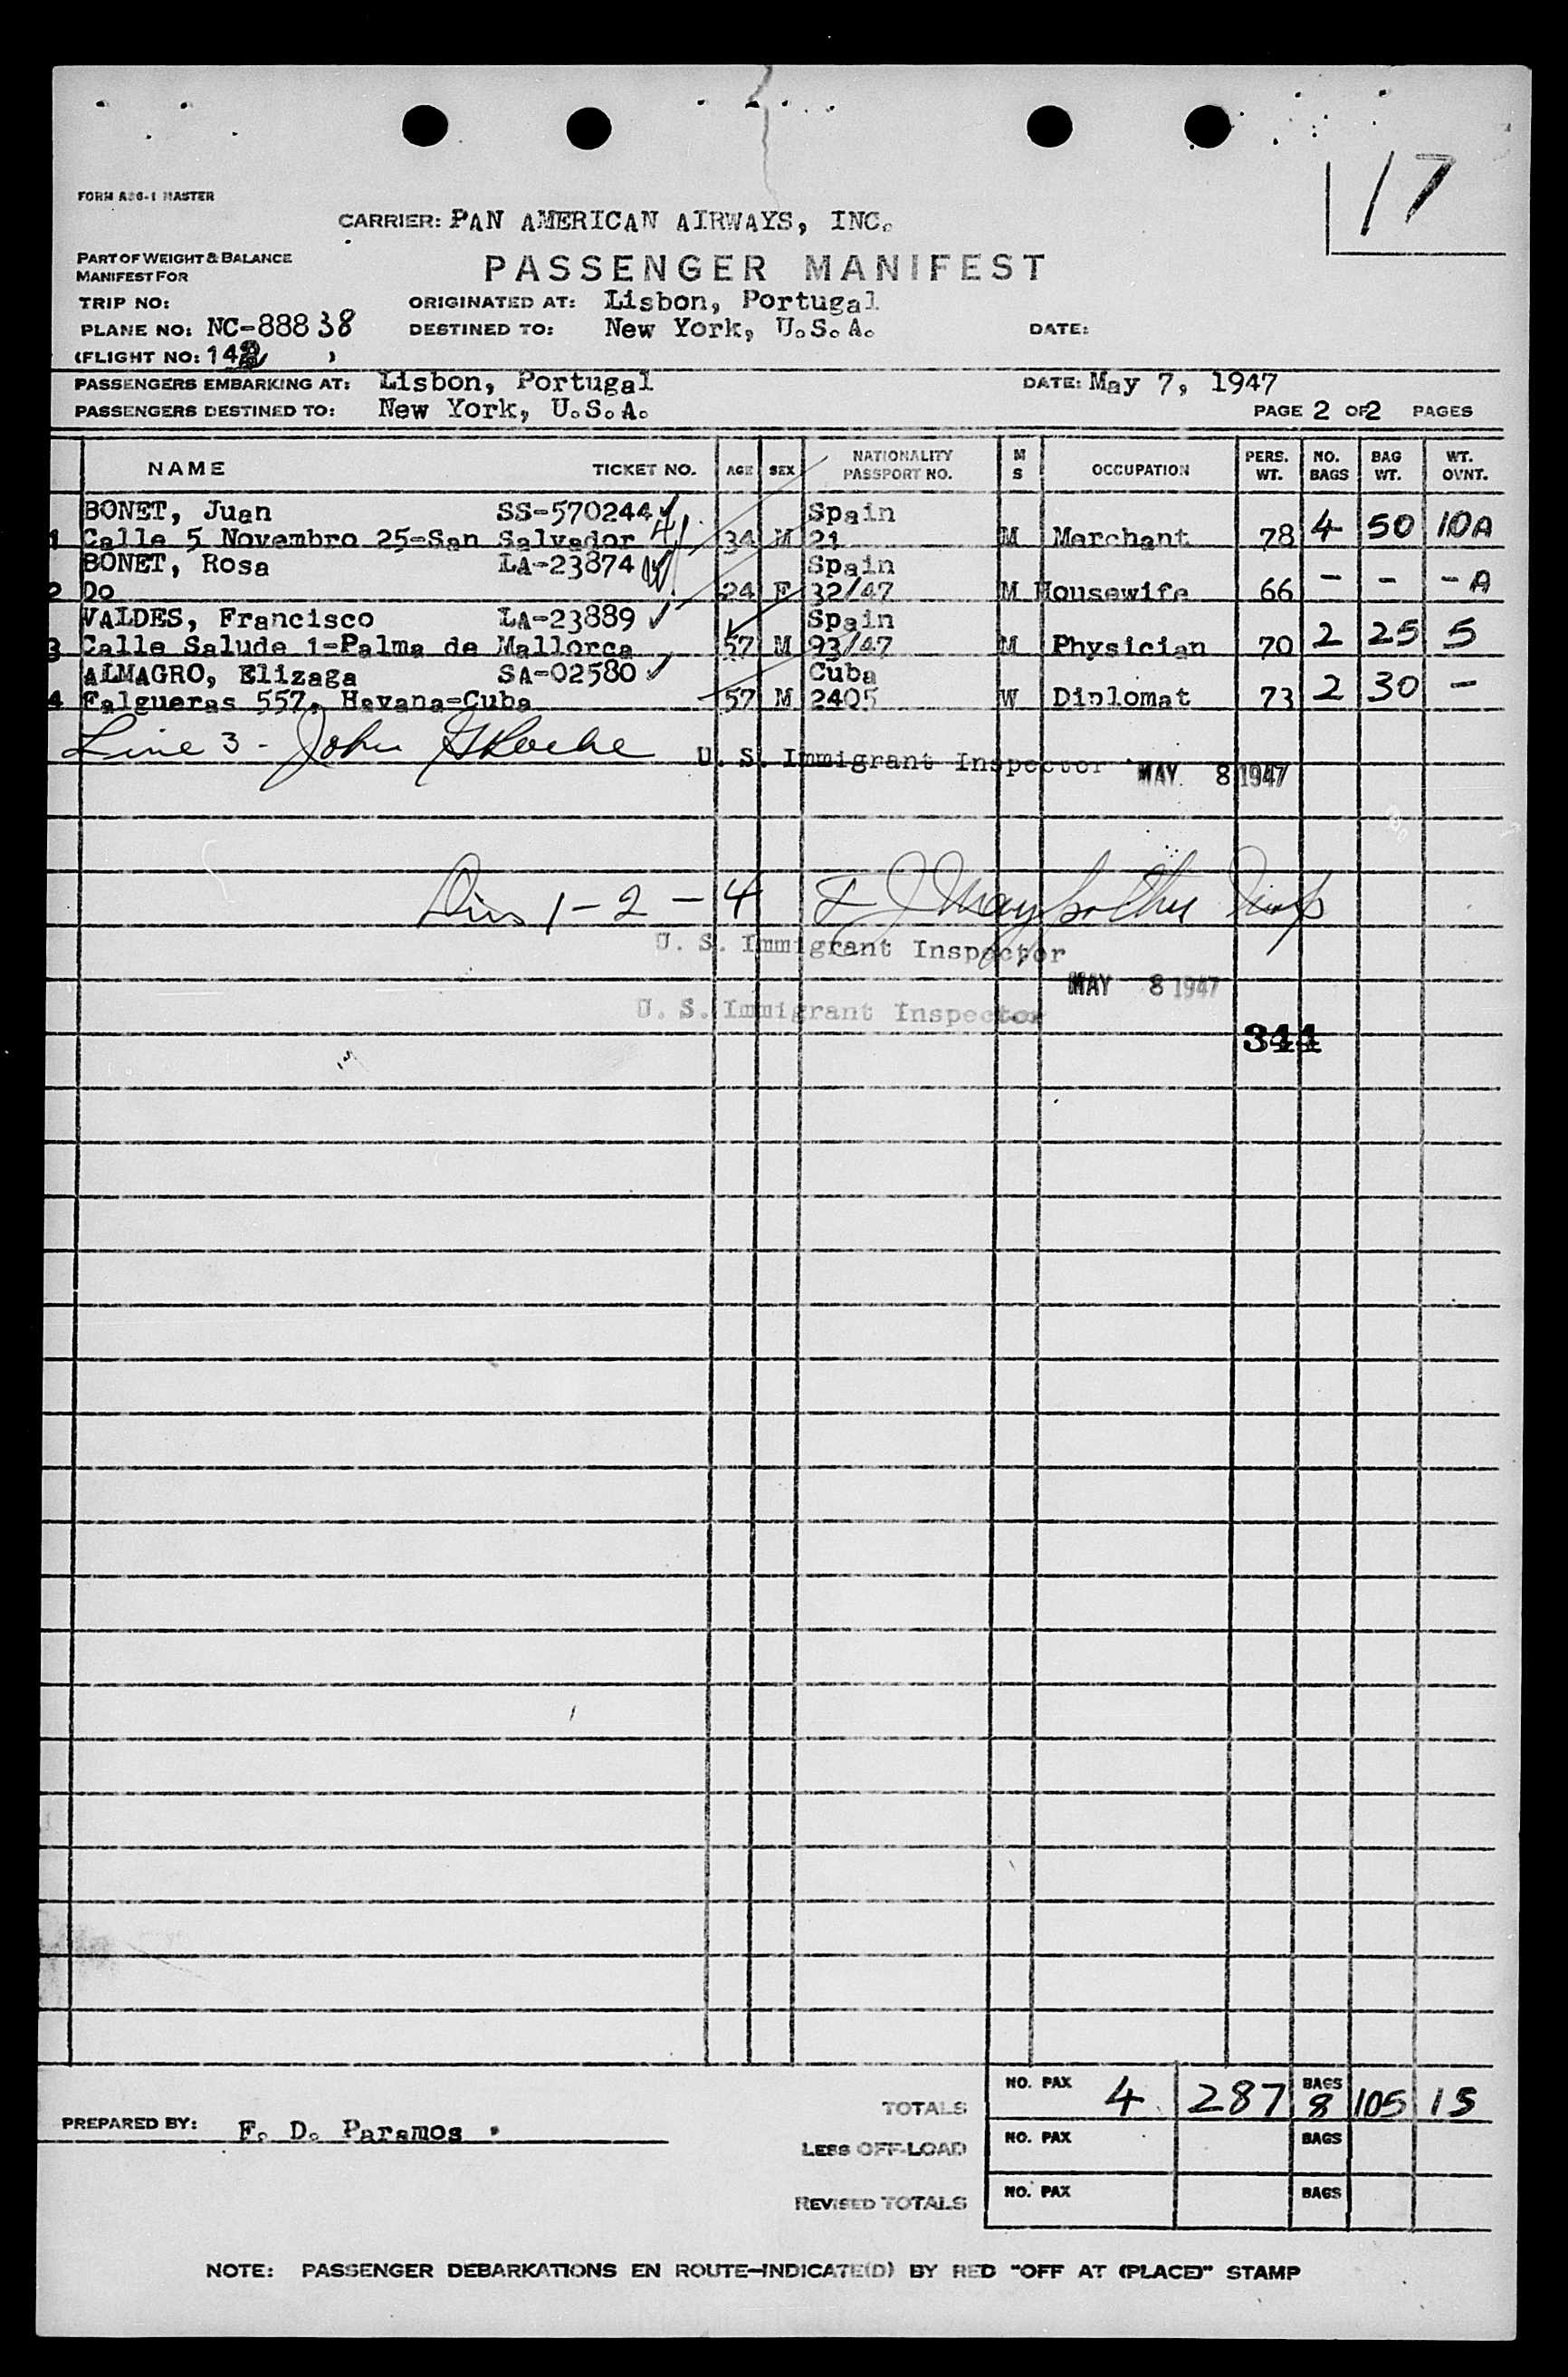 17
FORM ABG-1 MASTER
CARRIER: PAN AMERICAN AIRWAYS, INC.
PART OF WEIGHT & BALANCE
MANIFEST FOR
PASSENGER MANIFEST
TRIP NO: ORIGINATED AT: Lisbon, Portugal
PLANE NO: NC-88838 DESTINED TO: New York, U.S.A. DATE:
(FLIGHT NO: 142 )
PASSENGERS EMBARKING AT: Lisbon, Portugal DATE: May 7, 1947
PASSENGERS DESTINED TO: New York, U.S.A. PAGE 2 OF 2 PAGES
NAME TICKET NO. AGE SEX NATIONALITY PASSPORT NO. M S OCCUPATION PERS. WT. NO. BAGS BAG WT. WT. OVNT.
BONET, Juan SS-570244 Spain
1 Calle 5 Novembro 25=San Salvador 34 M 21 M Merchant 78 4 50 10A
BONET, Rosa LA-23874 Spain
2 Do 24 F 32/47 M Housewife 66 - - - A
VALDES, Francisco LA-23889 Spain
3 Calle Salude 1=Palma de Mallorca 57 M 93/47 M Physician 70 2 25 5
ALMAGRO, Elizaga SA-02580 Cuba
4 Falgueras 557, Havana=Cuba 57 M 2405 W Diplomat 73 2 30 -
Line 3 - John
U. S. Immigrant Inspector MAY 8 1947
1 - 2 - 4
U. S. Immigrant Inspector
MAY 8 1947
U. S. Immigrant Inspector
344
TOTALS NO. PAX 4 287 BAGS 8 105 15
PREPARED BY: F. D. Paramos
LESS OFF-LOAD NO. PAX BAGS
REVISED TOTALS NO. PAX BAGS
NOTE: PASSENGER DEBARKATIONS EN ROUTE—INDICATE(D) BY RED "OFF AT (PLACE)" STAMP